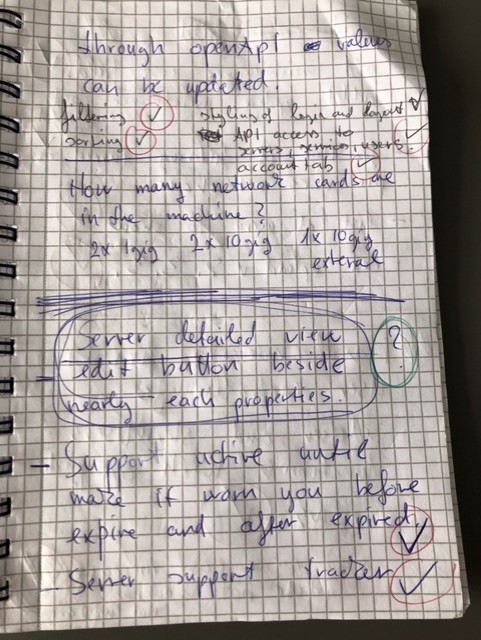 through openApi values
can be updated.
filtering ✓ styling of login and logout ✓
sorting ✓ API access to
errors, services, users. ✓
account tab ✓
How many network cards are
in the machine?
2x 1gig 2x 10gig 1x 10gig
exteral
Server detailed view ?
- edit button beside
nearly each properties.
- Support active until
make it warn you before
expire and after expired. ✓
- Server support tracker ✓